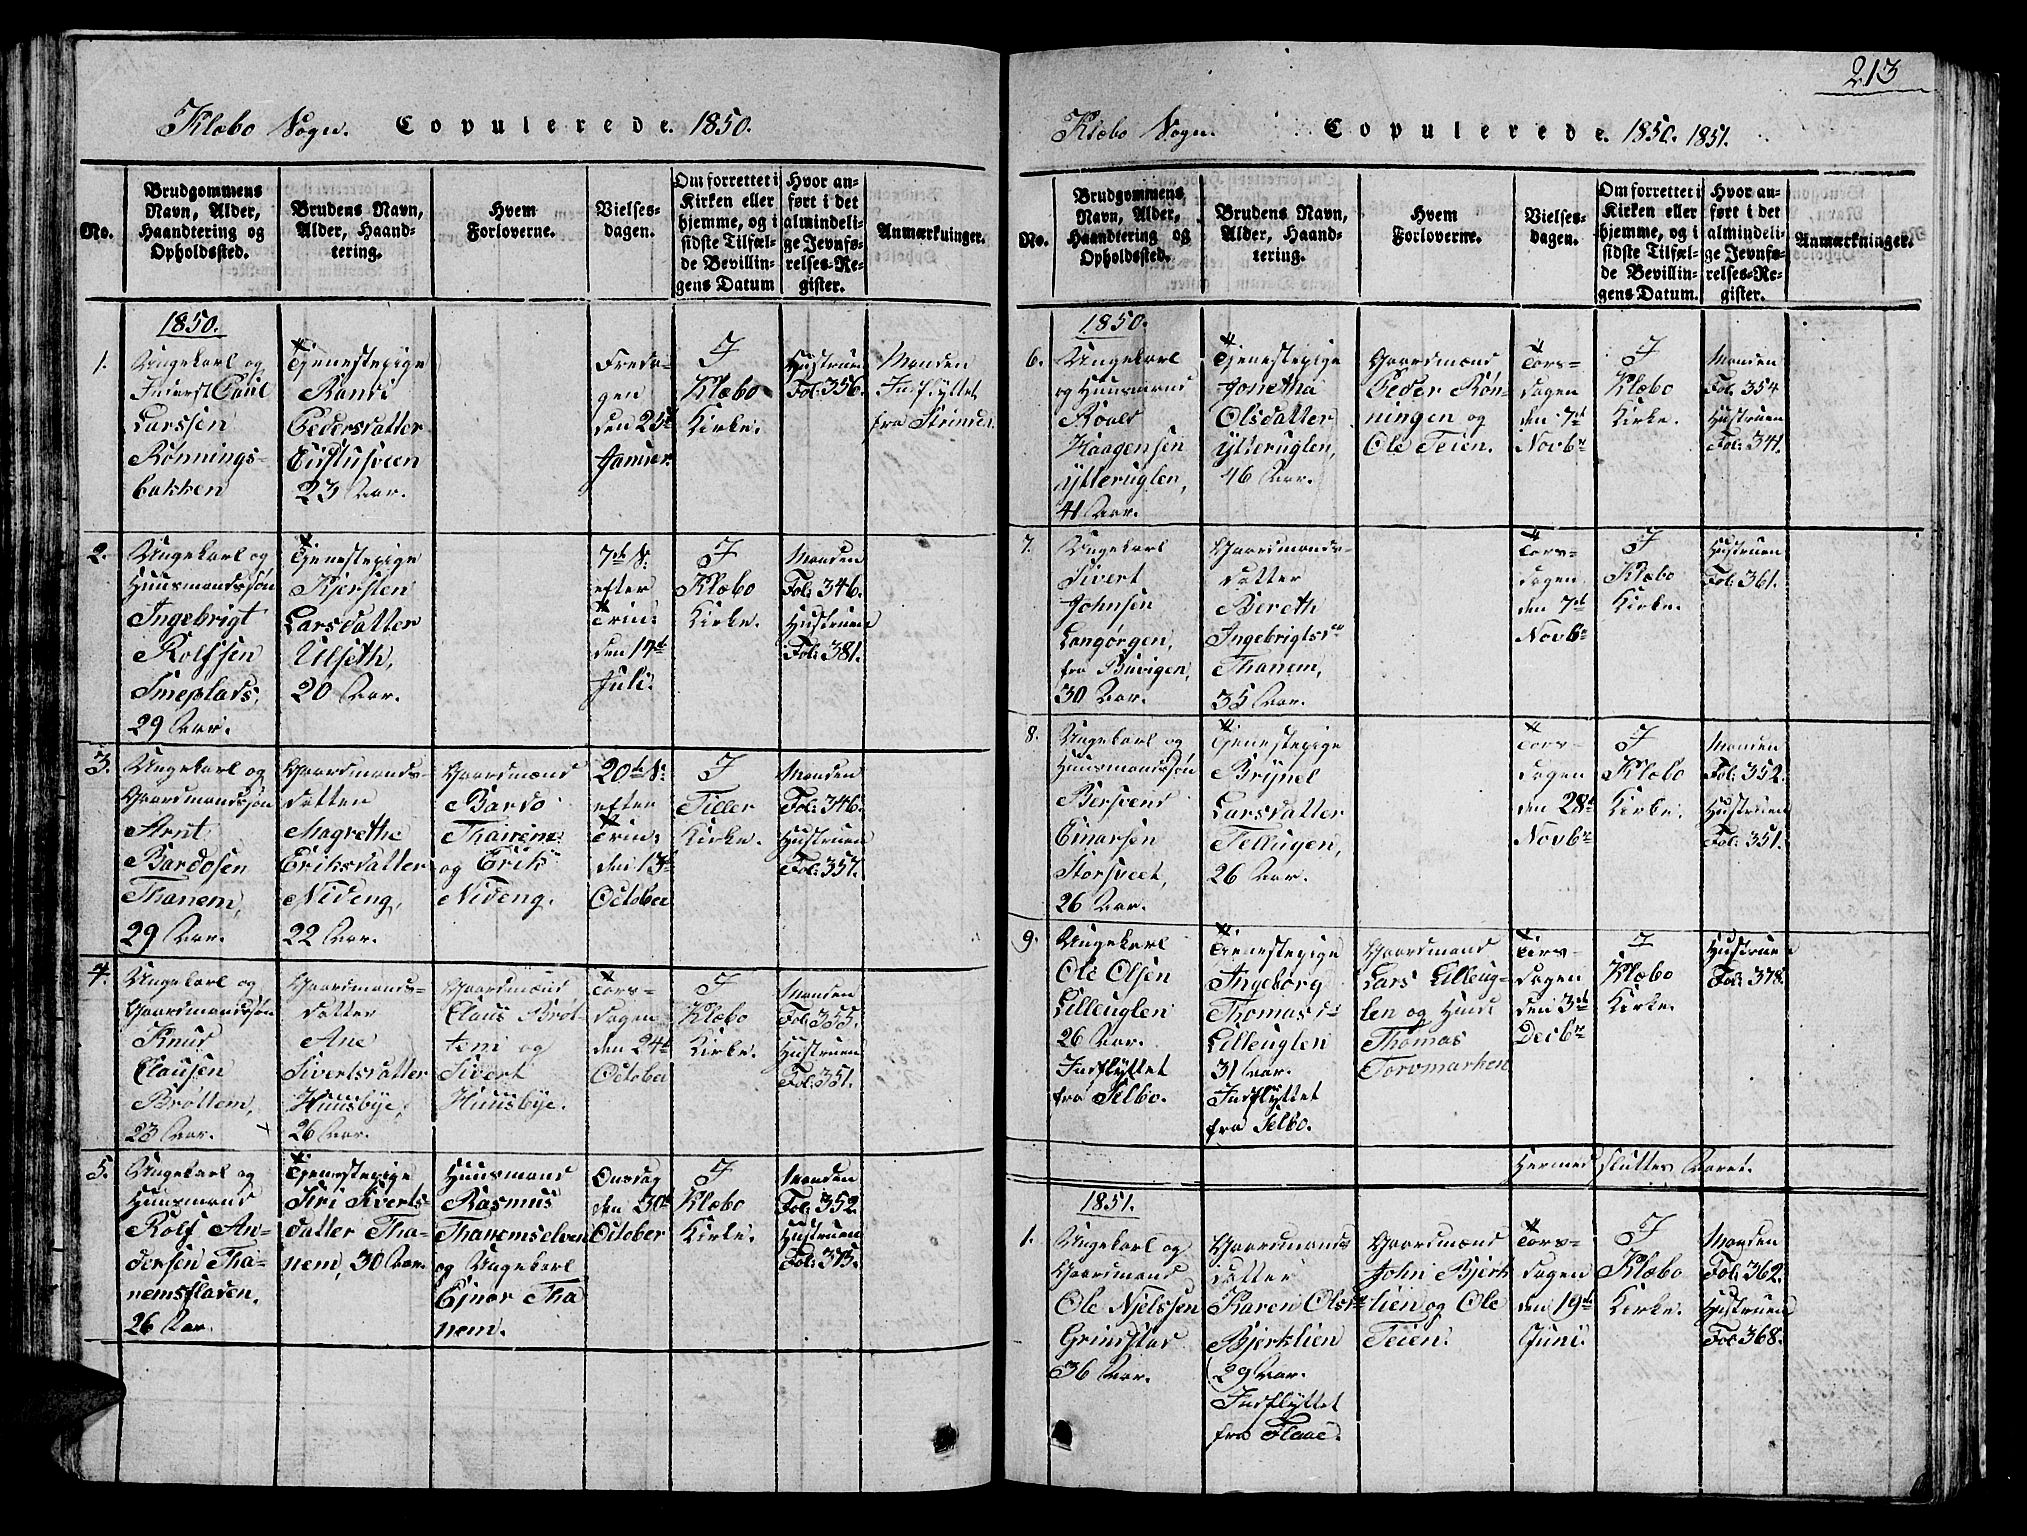 Klæbo Sogn. Copulerede. 1850.
No.
Brudgommens
Navn, Alder,
Haandtering og
Opholdssted.
Brudens Navn,
Alder, Haand-
tering.
Hvem
Forloverne.
Vielses-
dagen.
Om forrettet i
Kirken eller
hjemme, og i
sidste Tilfæl-
de Bevillin-
gens Datum
Hvor an-
ført i det
almindeli-
ge Jevnfø-
relses-Re-
gister.
Anmærkninger.
1850.
1.
Ungekarl og
Inderst Paul
Larssen
Rønnings-
bakken
Tjenestepige
Randi
Pedersdatter
23 Aar.
Freda-
gen
den 25de
Januar
I
Klæbo
Kirke.
Hustruen
Fol: 356.
Manden
Indflyttet
fra Strinden
2.
Ungekarl og
Huusmandssøn
Ingebrigt
Rolfsen
Smeplads,
29 Aar.
Tjenestepige
Kjersten
Larsdatter
Ulseth,
20 Aar.
7de S:
efter
Trin:
den 14de
Juli.
I
Klæbo
Kirke.
Manden
Fol: 346.
Hustruen
Fol: 381.
3.
Ungekarl og
Gaardmandssøn
Arnt
Bardosen
Thanem,
29 Aar.
Gaardmands-
datter
Magrethe
Eriksdatter
Nideng,
22 Aar.
Gaardmænd
Bardo
Thanem
og Erik
Nideng.
20de S:
efter
Trin:
den 13de
October
I
Tiller
Kirke.
Manden
Fol: 346.
Hustruen
Fol: 357.
4.
Ungekarl og
Gaardmandssøn
Knud
Clausen
Brøttem,
23 Aar.
Gaardmands-
datter
Ane
Sivertsdatter
Huusbye,
26 Aar.
Gaardmænd
Claus Brøt-
tem og
Sivert
Huusbye.
Tors-
dagen
den 24de
October
I
Klæbo
Kirke.
Manden
Fol: 355.
Hustruen
Fol: 351.
5.
Ungekarl og
Huusmand
Rolf An-
dersen Tha-
nemsfladen,
26 Aar.
Tjenestepige
Siri Siverts-
datter Tha-
nem, 30 Aar.
Huusmand
Rasmus
Thanemselven
og Ungekarl
Ejnar Tha
nem.
Onsdag
den 30te
October
I
Klæbo
Kirke.
Manden
Fol: 352
Hustruen
Fol: 375.
213
Klæbo Sogn. Copulerede. 1850. 1851.
No.
Brudgommens
Navn, Alder,
Haandtering og
Opholdssted.
Brudens Navn,
Alder, Haand-
tering.
Hvem
Forloverne.
Vielses-
dagen.
Om forrettet i
Kirken eller
hjemme, og i
sidste Tilfæl-
de Bevillin-
gens Datum.
Hvor an-
ført i det
almindeli-
ge Jevnfø-
relses-Re-
gister.
Anmærkninger.
1850.
6.
Ungekarl
og Huusmand
Roald
Haagensen
Ytteruglen,
41 Aar.
Tjenestepige
Jonetha
Olsdatter
Ytteruglen,
46 Aar.
Gaardmænd
Peder Røn-
ningen og
Ole Teien.
Tors-
dagen
den 7de
Novbr
I
Klæbo
Kirke.
Manden
Fol: 354
Hustruen
Fol: 341.
7.
Ungekarl
Sivert
Johnsen
Langørgen,
fra Buvigen,
30 Aar.
Gaardmands-
datter
Bereth
Ingebrigtsdr
Thanem,
35 Aar.
Tors-
dagen
den 7de
Novbr
I
Klæbo
Kirke.
Hustruen
Fol: 361.
8.
Ungekarl og
Huusmandssøn
Bersvend
Einarsen
Storsveet,
26 Aar.
Tjenestepige
Brynel
Larsdatter
Tellugen,
26 Aar.
Tors-
dagen
den 28de
Novbr
I
Klæbo
Kirke.
Manden
Fol: 352.
Hustruen
Fol: 351.
9.
Ungekarl
Ole Olsen
Lilleuglen
26 Aar.
Indflyttet
fra Selbo.
Tjenestepige
Ingeborg
Thomasdr
Lilleuglen
31 Aar.
Indflyttet
fra Selbo.
Gaardmand
Lars Lilleug-
len og Huus:
Thomas
Torvmarken
Tirs-
dagen
den 3de
Decbr
I
Klæbo
Kirke.
Hustruen
Fol: 378.
Hermed sluttes Aaret.
1851.
1.
Ungekarl og
Gaardmand
Ole Njelssen
Grindstad
36 Aar.
Gaardmands
datter
Karen Olsdr
Bjerklien
29 Aar.
Indflyttet
fra Flaae.
Gaardmænd
John Bjerk
lien og Ole
Teien.
Tors-
dagen
den 19de
Juni.
I
Klæbo
Kirke.
Manden
Fol: 362.
Hustruen
Fol: 368.